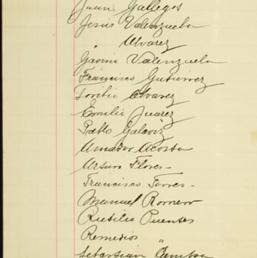 Juan Gallegos
Jesús Valenzuela
" Alvarez
Valenzuela
Francisco Gutierrez
Alvarez
Emilio Juárez
Pablo
Amador Acosta
Arturo Flores-
Francisco Torres-
Manuel Romero
Rutilio Puentes
Remedios "
Sebastian